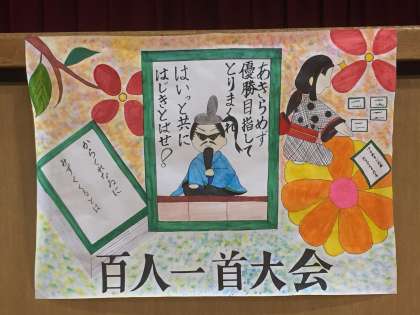 あきらめず
優勝目指して
とりまくれ
はいっと共に
はじきとばせ!
からくれなゐに
百人一首大会